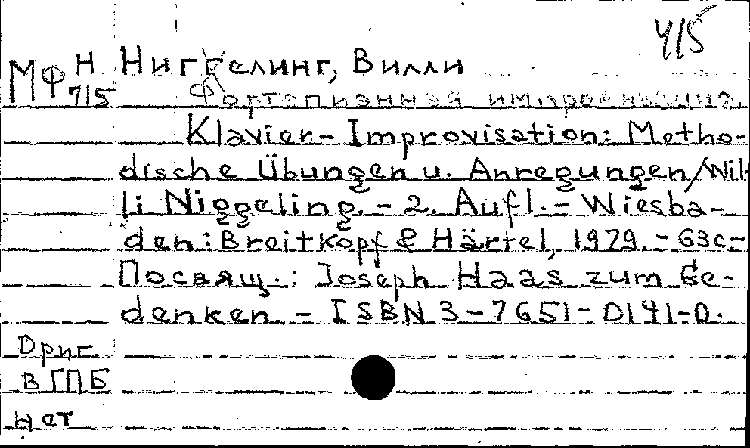 4/5
Н Ниггелинг, Вилли
МФ 715 Фортепианная импровизация.
Klavier-Improvisation: Metho-
dische Übungen u. Anregungen/Wil-
li Niggeling. - 2. Aufl. - Wiesba-
den: Breitkopf & Härtel, 1979. - 63c-
Посвящ.: Joseph Haas zum Ge-
denken. - ISBN 3-7651-0141-0.
Ориг.
в ГПБ
нет